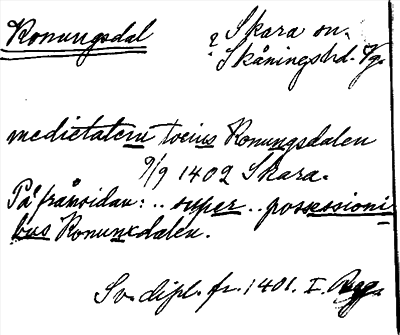 Konungsdal
? Skara sn.
Skånings hd. Vg.
medietatem tocius Konungsdalen
9/9 1402 Skara.
På framsidan: .. super .. possessioni
bus Konunxdalen.
Sv. dipl. fr. 1401. I.